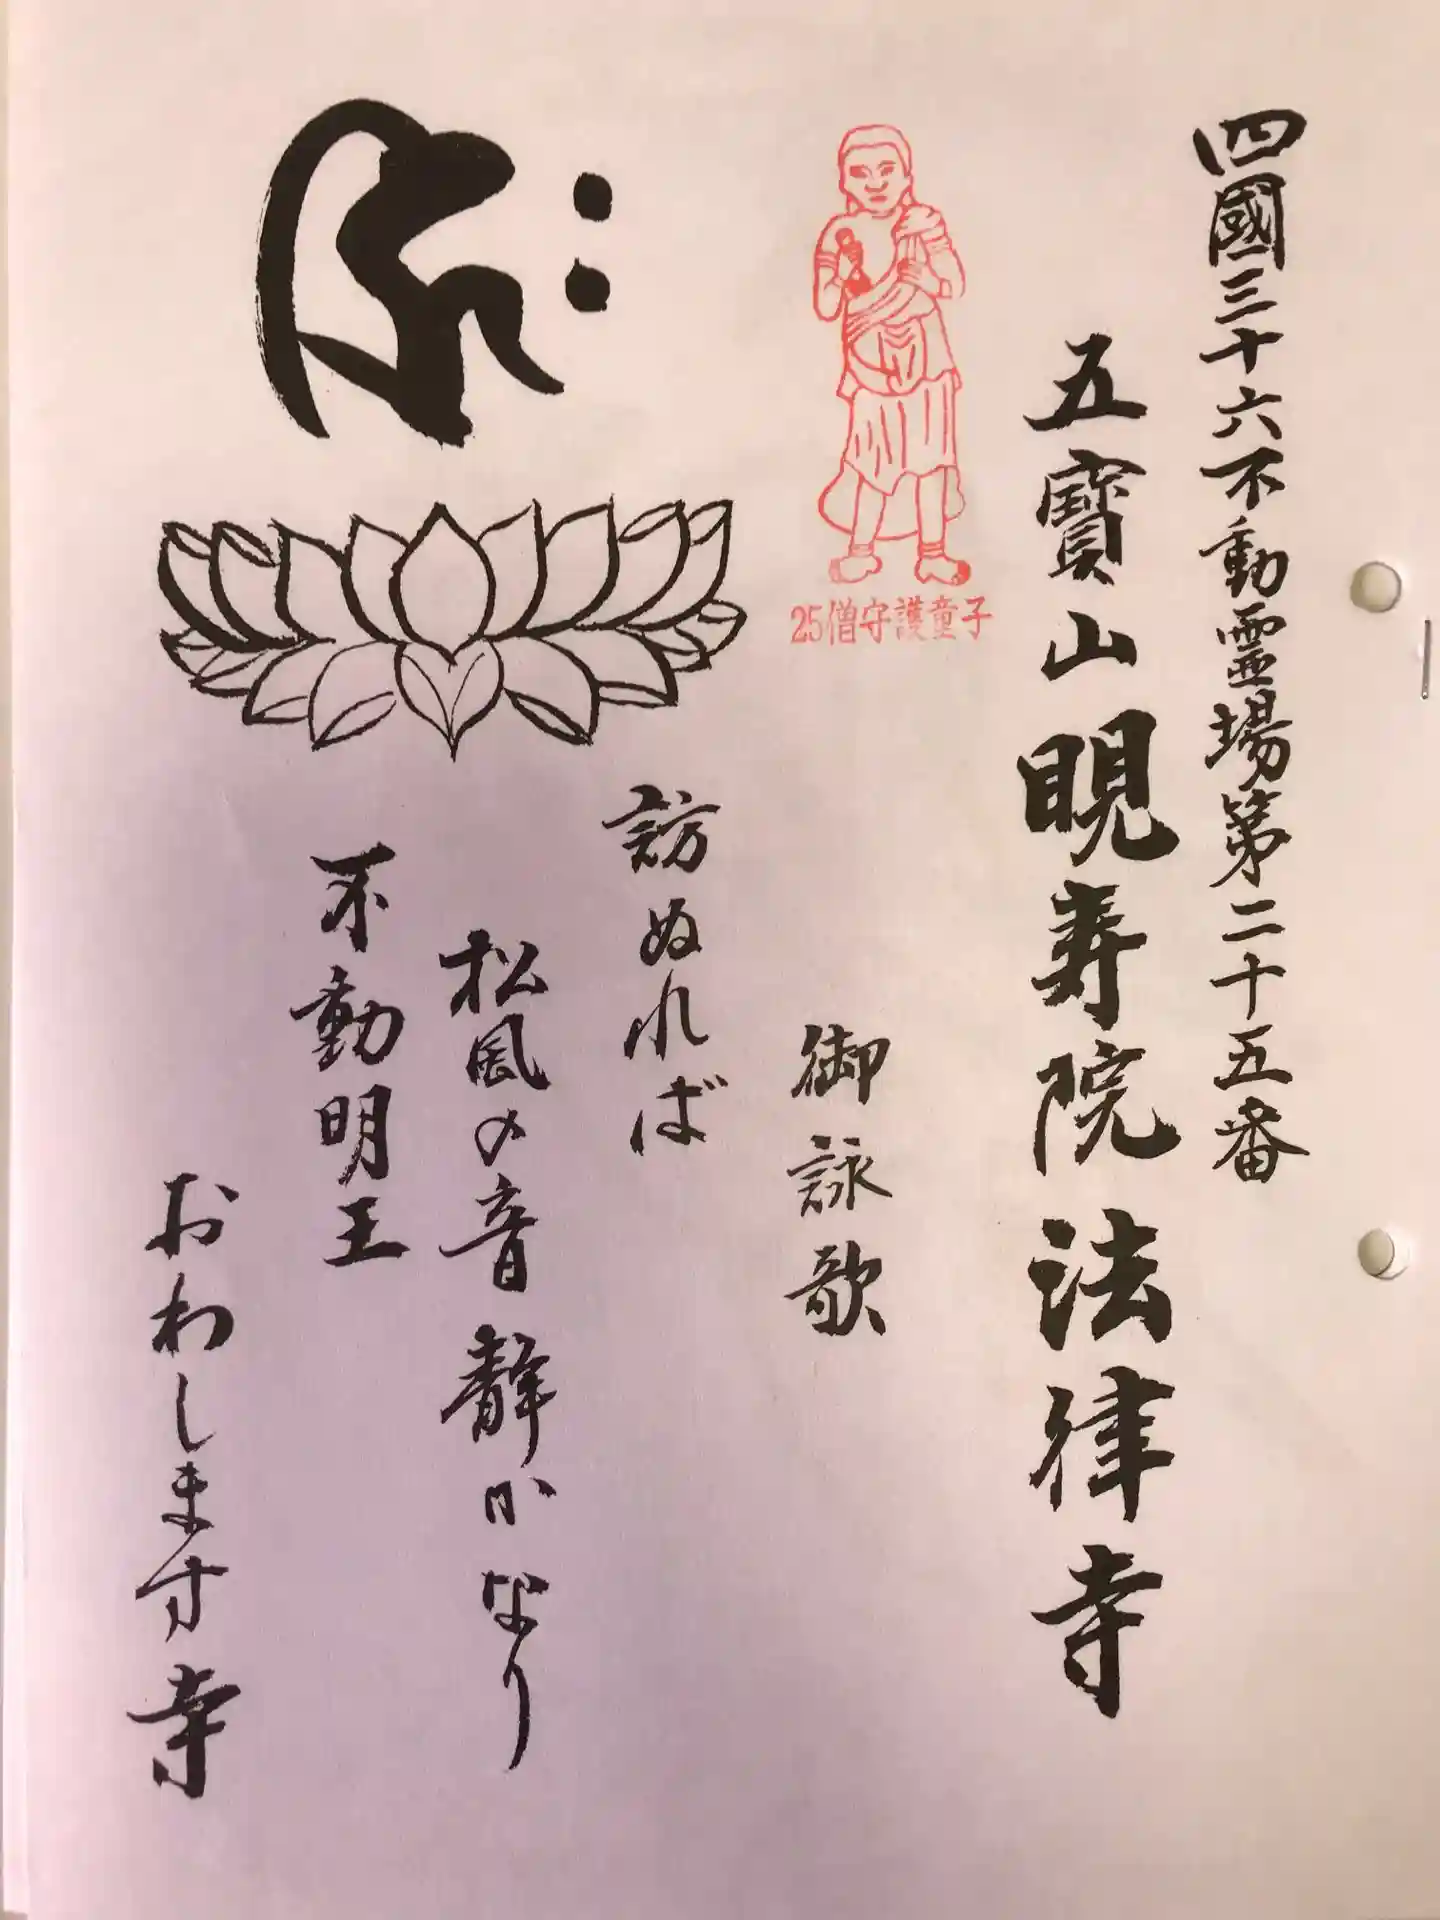 四國三十六不動霊場第二十五番
五寳山現壽院法律寺
25僧守護童子
御詠歌
訪ぬれば
松風の音静かなり
不動明王
おわします寺